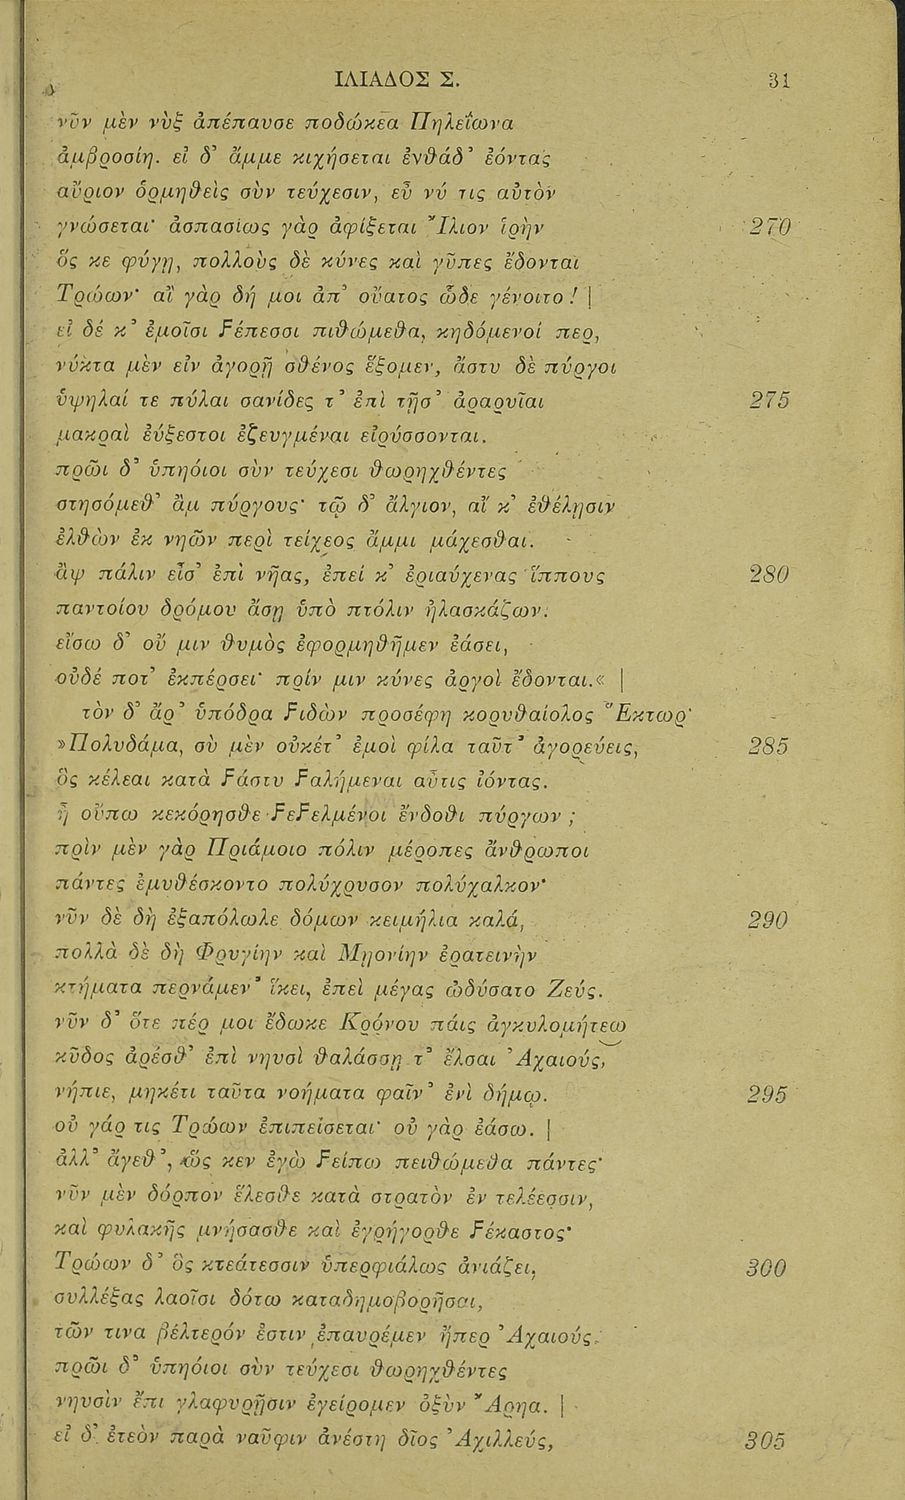 ΙΛΙΑΔΟΣ Σ. 31
νῦν μὲν νὺξ ἀπέπαυσε ποδώκεα Πηλεΐωνα
ἀμβροσίη. εἰ δ' ἄμμε κιχήσεται ἐνθάδ' ἐόντας
αὔριον ὁρμηθεὶς σὺν τεύχεσιν, εὖ νύ τις αὐτὸν
γνώσεται· ἀσπασίως γὰρ ἀφίξεται Ἴλιον ἱρὴν 270
ὅς κε φύγῃ, πολλοὺς δὲ κύνες καὶ γῦπες ἔδονται
Τρώων· αἲ γὰρ δή μοι ἀπ' οὔατος ὧδε γένοιτο! |
εἰ δέ κ' ἐμοῖσι Ϝέπεσσι πιθώμεθα, κηδόμενοί περ,
νύκτα μὲν εἰν ἀγορῇ σθένος ἕξομεν, ἄστυ δὲ πύργοι
ὑψηλαί τε πύλαι σανίδες τ' ἐπὶ τῇσ' ἀραρυῖαι 275
μακραὶ ἐύξεστοι ἐζευγμέναι εἰρύσσονται.
πρῶι δ' ὑπηόιοι σὺν τεύχεσι θωρηχθέντες
στησόμεθ' ἂμ πύργους· τῷ δ' ἄλγιον, αἴ κ' ἐθέλῃσιν
ἐλθὼν ἐκ νηῶν περὶ τείχεος ἄμμι μάχεσθαι.
ἂψ πάλιν εἶσ' ἐπὶ νῆας, ἐπεί κ' ἐριαύχενας ἵππους 280
παντοίου δρόμου ἄσῃ ὑπὸ πτόλιν ἠλασκάζων.
εἴσω δ' οὔ μιν θυμὸς ἐφορμηθῆμεν ἐάσει,
οὐδέ ποτ' ἐκπέρσει· πρίν μιν κύνες ἀργοὶ ἔδονται.« |
τὸν δ' ἄρ' ὑπόδρα Ϝιδὼν προσέφη κορυθαίολος Ἕκτωρ·
»Πολυδάμα, σὺ μὲν οὐκέτ' ἐμοὶ φίλα ταῦτ' ἀγορεύεις, 285
ὃς κέλεαι κατὰ Ϝάστυ Ϝαλήμεναι αὖτις ἰόντας.
ἦ οὔπω κεκόρησθε ϜεϜελμένοι ἔνδοθι πύργων ;
πρὶν μὲν γὰρ Πριάμοιο πόλιν μέροπες ἄνθρωποι
πάντες ἐμυθέσκοντο πολύχρυσον πολύχαλκον·
νῦν δὲ δὴ ἐξαπόλωλε δόμων κειμήλια καλά, 290
πολλὰ δὲ δὴ Φρυγίην καὶ Μῃονίην ἐρατεινὴν
κτήματα περνάμεν' ἵκει, ἐπεὶ μέγας ὠδύσατο Ζεύς.
νῦν δ' ὅτε πέρ μοι ἔδωκε Κρόνου πάις ἀγκυλομήτεω
κῦδος ἀρέσθ' ἐπὶ νηυσὶ θαλάσσῃ τ' ἔλσαι Ἀχαιούς,
νήπιε, μηκέτι ταῦτα νοήματα φαῖν' ἐνὶ δήμῳ. 295
οὐ γάρ τις Τρώων ἐπιπείσεται· οὐ γὰρ ἐάσω. |
ἀλλ' ἄγεθ', ὡς κεν ἐγὼ Ϝείπω πειθώμεθα πάντες·
νῦν μὲν δόρπον ἕλεσθε κατὰ στρατὸν ἐν τελέεσσιν,
καὶ φυλακῆς μνήσασθε καὶ ἐγρήγορθε Ϝέκαστος·
Τρώων δ' ὃς κτεάτεσσιν ὑπερφιάλως ἀνιάζει, 300
συλλέξας λαοῖσι δότω καταδημοβορῆσαι,
τῶν τινα βέλτερόν ἐστιν ἐπαυρέμεν ἤπερ Ἀχαιούς.
πρῶι δ' ὑπηόιοι σὺν τεύχεσι θωρηχθέντες
νηυσὶν ἔπι γλαφυρῇσιν ἐγείρομεν ὀξὺν Ἄρηα. |
εἰ δ' ἐτεὸν παρὰ ναῦφιν ἀνέστη δῖος Ἀχιλλεύς, 305